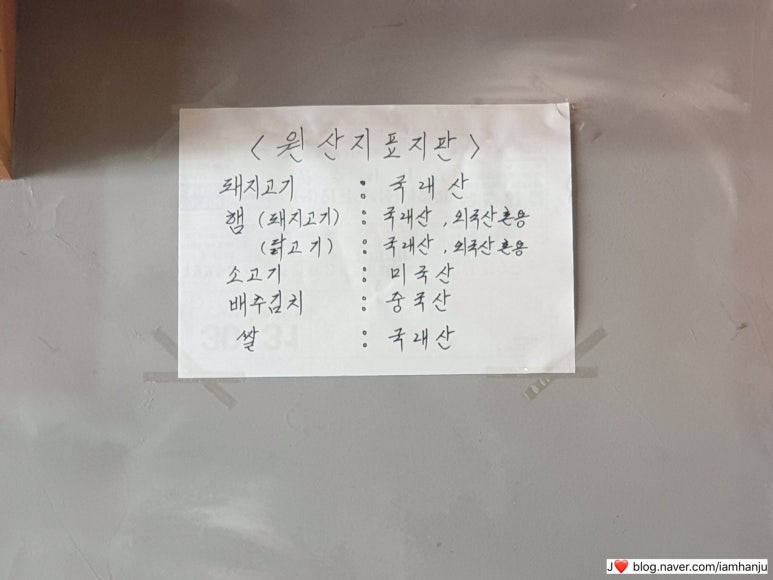 < 원산지표지판 >
돼지고기 : 국내산
햄 (돼지고기) : 국내산 , 외국산 혼용
(닭고기) : 국내산 , 외국산 혼용
소고기 : 미국산
배추김치 : 중국산
쌀 : 국내산
J❤️ blog.naver.com/iamhanju